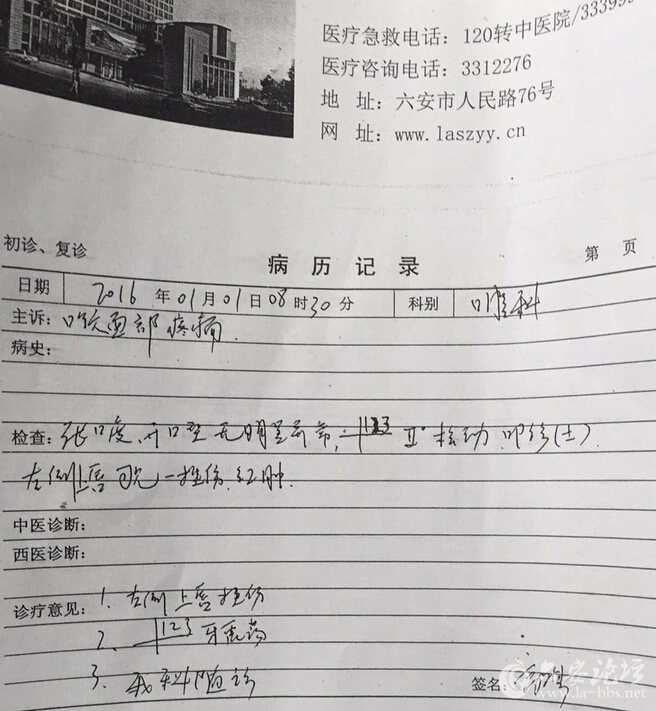 医疗急救电话：120转中医院/33399
医疗咨询电话：3312276
地 址：六安市人民路76号
网 址：www.laszyy.cn
初诊、复诊
病 历 记 录
第 页
日期 2016 年 01 月 01 日 08 时 30 分 科别 口腔科
主诉：口腔面部疼痛
病史：
检查：张口度、开口型无明显异常，123 II° 松动 叩诊(±)
左侧上唇可见一挫伤，红肿．
中医诊断：
西医诊断：
诊疗意见：1、左侧上唇挫伤
2、123 牙
3、我科随诊
签名：
六安论坛
www.la-bbs.net